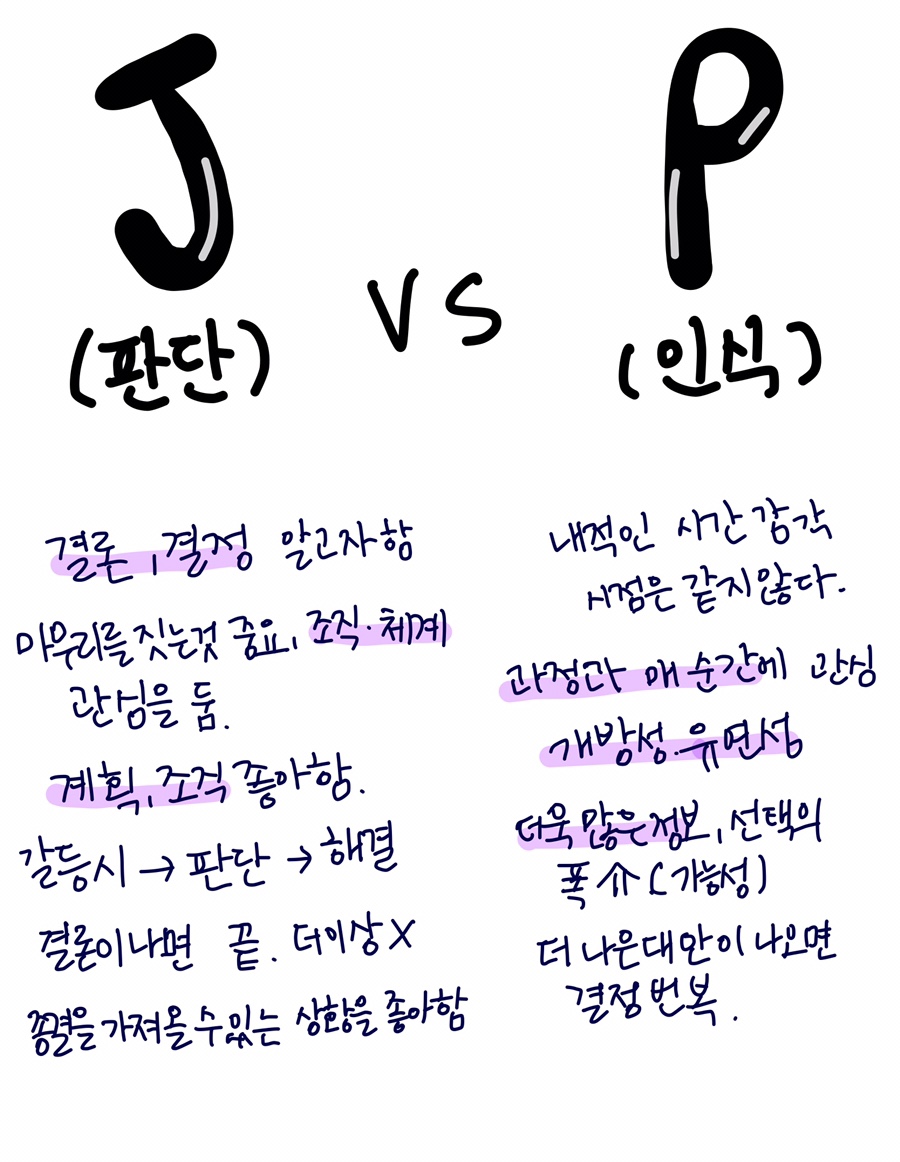 J
vs
P
(판단)
(인식)
결론, 결정 알고자 함
마무리를 짓는것 중요, 조직·체계
관심을 둠.
계획, 조직 좋아함.
갈등시 → 판단 → 해결
결론이나면 끝. 더이상 X
종결을 가져올 수 있는 상황을 좋아함
내적인 시간 감각
시점은 같지않다.
과정과 매 순간에 관심
개방성. 유연성
더욱 많은 정보, 선택의
폭 ⇑ (가능성)
더 나은 대안이 나오면
결정 번복.